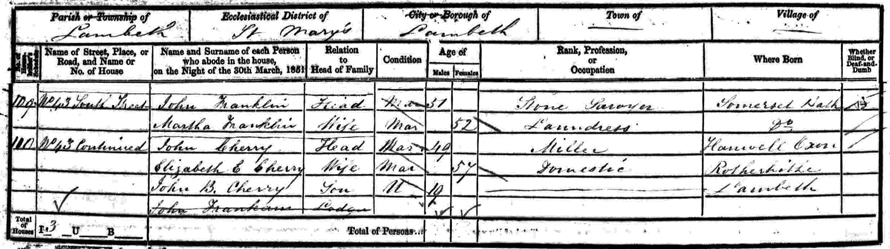 Parish or Township of Ecclesiastical District of City or Borough of Town of Village of
Lambeth St Mary's Lambeth
Name of Street, Place, or Road, and Name or No. of House Name and Surname of each Person who abode in the house, on the Night of the 30th March, 1851 Relation to Head of Family Condition Age of Males Females Rank, Profession, or Occupation Where Born Whether Blind, or Deaf-and-Dumb
109 No 43 South Street John Franklin Head Mar 51 Stone Sawyer Somerset Bath
Martha Franklin Wife Mar 52 Laundress Do
110 No 43 Continued John Cherry Head Mar 49 Miller Hanwell Oxon
Elizabeth E Cherry Wife Mar 57 Domestic Rotherhithe
John B. Cherry Son U 19 Lambeth
John Lodger
Total of Houses I 3 U B Total of Persons